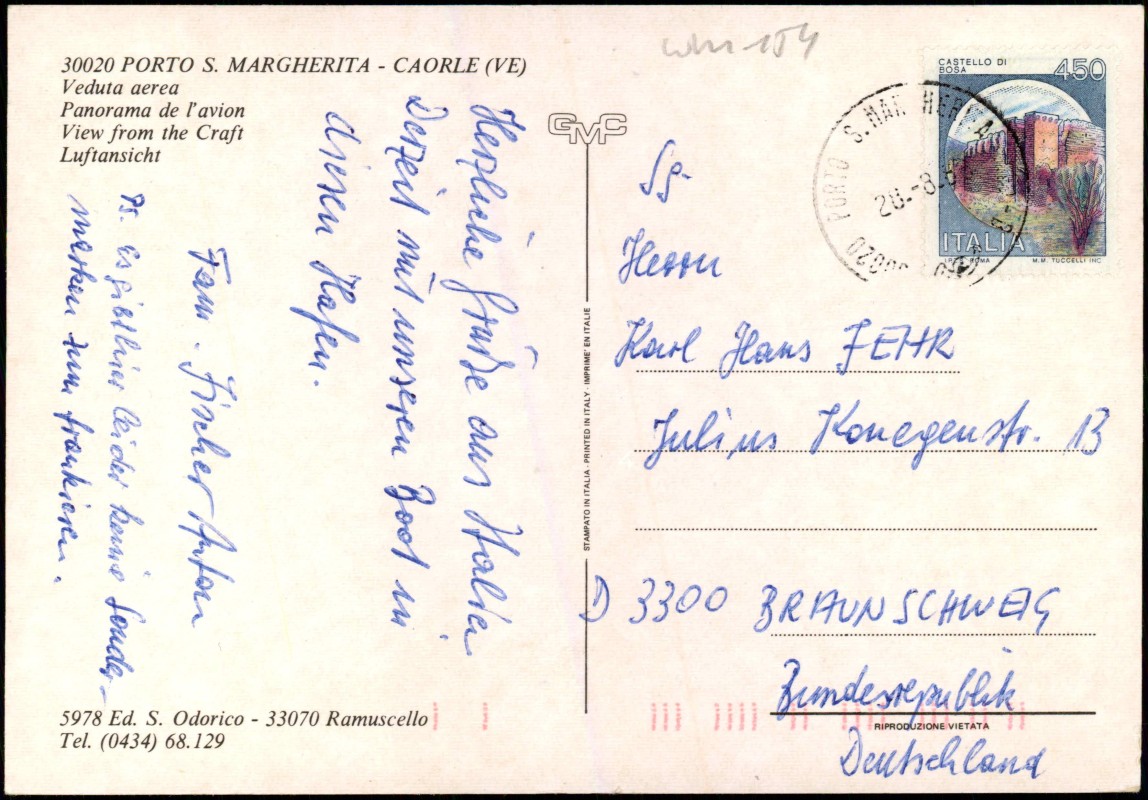 30020 PORTO S. MARGHERITA - CAORLE (VE)
Veduta aerea
Panorama de l'avion
View from the Craft
Luftansicht
Herzliche Grüße aus Italien
Derzeit mit unseren Boot in
diesen Hafen.
Fam. Fischer Anton
Ps. Es gibt hier leider keine Sonder-
marken zum frankieren.
5978 Ed. S. Odorico - 33070 Ramuscello
Tel. (0434) 68.129
GMC
STAMPATO IN ITALIA - PRINTED IN ITALY - IMPRIME' EN ITALIE
CASTELLO DI
BOSA
450
ITALIA
I.P.Z.S. ROMA
M.M. TUCCELLI INC.
30020 PORTO S. MARGHERITA
20.-8.
Sg.
Herrn
Karl Hans FEHR
Julius Konegenstr. 13
D 3300 BRAUNSCHWEIG
Bundesrepublik
RIPRODUZIONE VIETATA
Deutschland